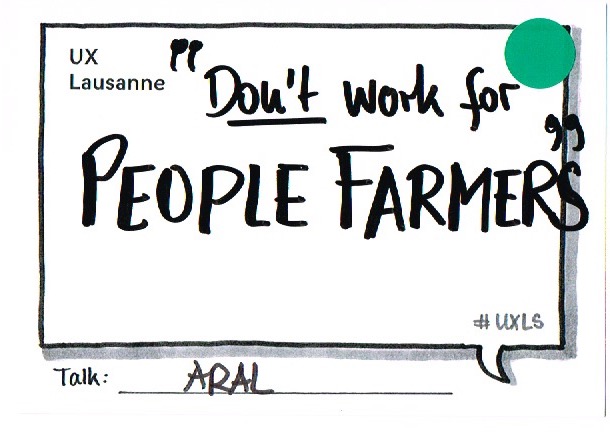 UX
Lausanne
"Don't work for
PEOPLE FARMERS"
#UXLS
Talk: ARAL